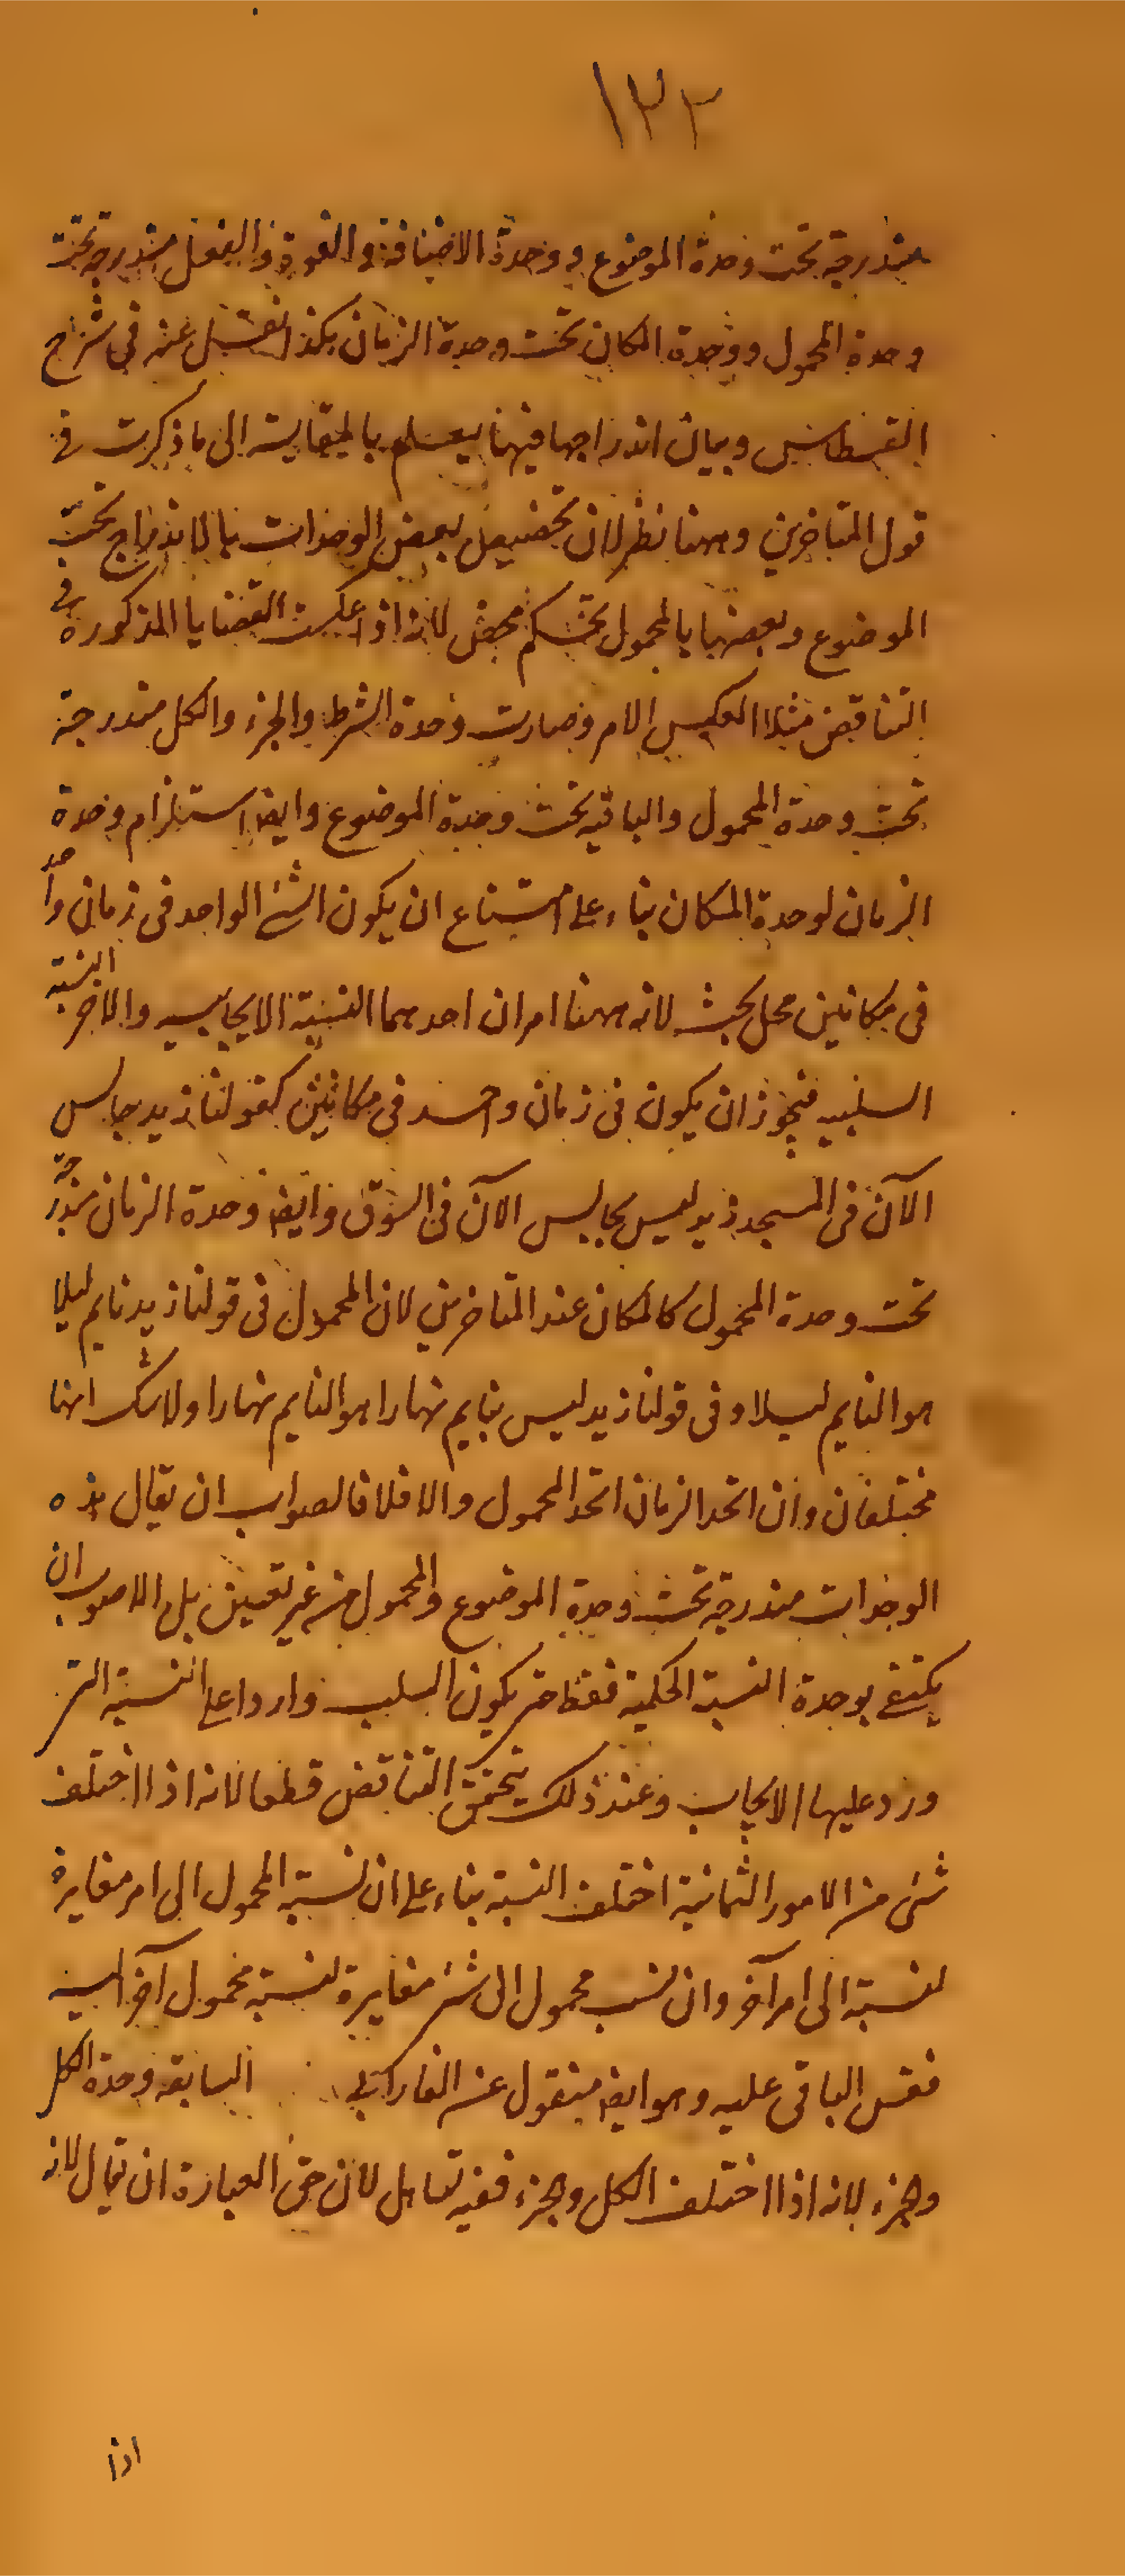 ١٢٢
مندرجة تحت وحدة الموضوع ووحدة الاضافة والقوة والفعل مندرجة تحت
وحدة المحمول ووحدة المكان تحت وحدة الزمان هكذا نقل عنه في شرح
القسطاس وبيان اندراجها فيها يعلم بالمقايسة الى ما ذكرت في
قول المتاخرين وههنا نظر لان تخصيص بعض الوحدات بالاندراج تحت
الموضوع وبعضها بالمحمول تحكم محض لانه اذا عكست القضايا المذكورة في
التناقض مثلا انعكس الامر وصارت وحدة الشرط والجزء والكل مندرجة
تحت وحدة المحمول والباقيه تحت وحدة الموضوع وايضا استلزام وحدة
الزمان لوحدة المكان بناء على امتناع ان يكون الشئ الواحد في زمان واحد
في مكانين محل بحث لانه ههنا امران احدهما النسبة الايجابيه والاخر النسبة
السلبيه فيجوز ان يكون في زمان واحد في مكانين كقولنا زيد جالس
الآن في المسجد زيد ليس بجالس الآن في السوق وايضا وحدة الزمان مندرجة
تحت وحدة المحمول كالمكان عند المتاخرين لان المحمول في قولنا زيد نايم ليلا
هو النايم ليلا وفي قولنا زيد ليس بنايم نهارا هو النايم نهارا ولا شك انهما
مختلفان وان اتحد الزمان اتحد المحمول والا فلا فالصواب ان يقال هذه
الوحدات مندرجة تحت وحدة الموضوع والمحمول من غير تعيين بل الاصوب ان
يكتفى بوحدة النسبة الحكمية فقط حتى يكون السلب واردا على النسبة التى
ورد عليها الايجاب وعند ذلك يتحقق التناقض قطعا لانه اذا اختلف
شئ من الامور الثمانية اختلف النسبة بناء على ان نسبة المحمول الى امر مغايرة
لنسبة الى امر آخر وان نسب محمول الى شئ مغايرة لنسبة محمول آخر اليه
فقس الباقي عليه وهو ايضا منقول عن الفارابى السابعة وحدة الكل
والجزء لانه اذا اختلف الكل والجزء ففيه تساهل لان حق العبارة ان يقال لانه
اذا